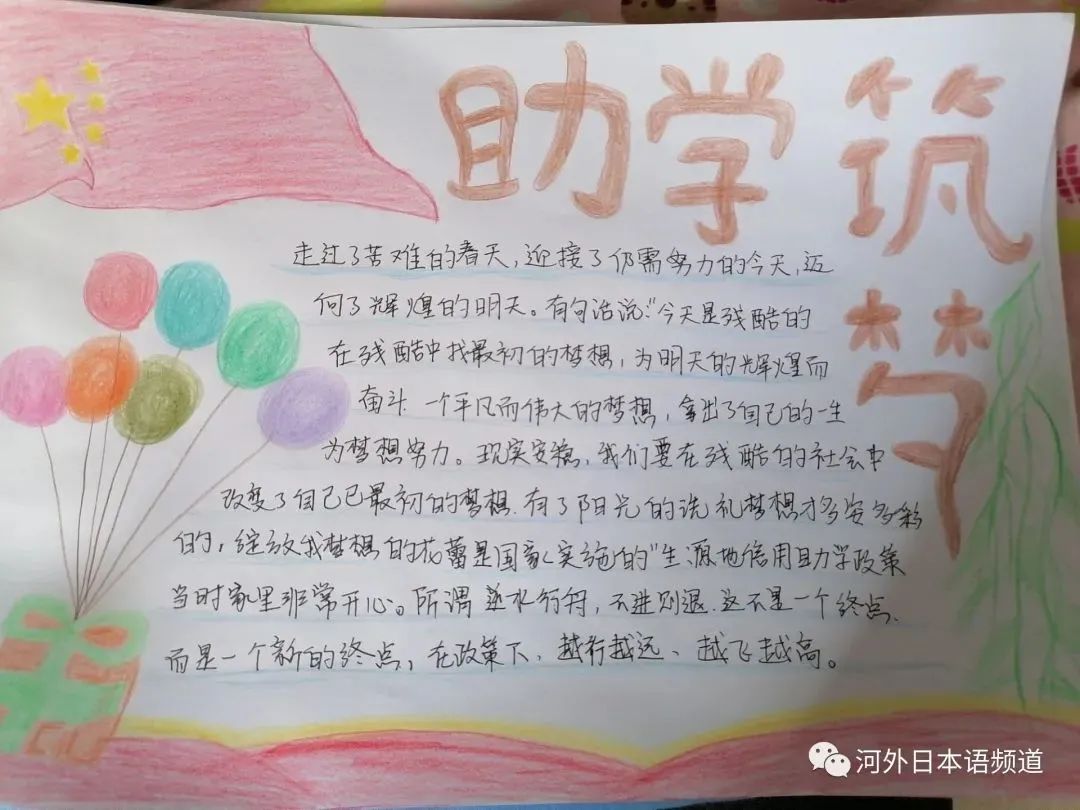 助学筑梦
走过了苦难的春天,迎接了仍需努力的今天,迈
向了辉煌的明天。有句话说:“今天是残酷的
在残酷中找最初的梦想,为明天的辉煌而
奋斗 一个平凡而伟大的梦想,拿出了自己的一生
为梦想努力。现实安稳,我们要在残酷的社会中
改变了自己已最初的梦想.有了阳光的洗礼梦想才多姿多彩
的,绽放我梦想的花蕾是国家实施的“生源地信用助学政策
当时家里非常开心。所谓逆水行舟,不进则退.这不是一个终点,
而是一个新的终点,在政策下,越行越远、越飞越高。
河外日本语频道